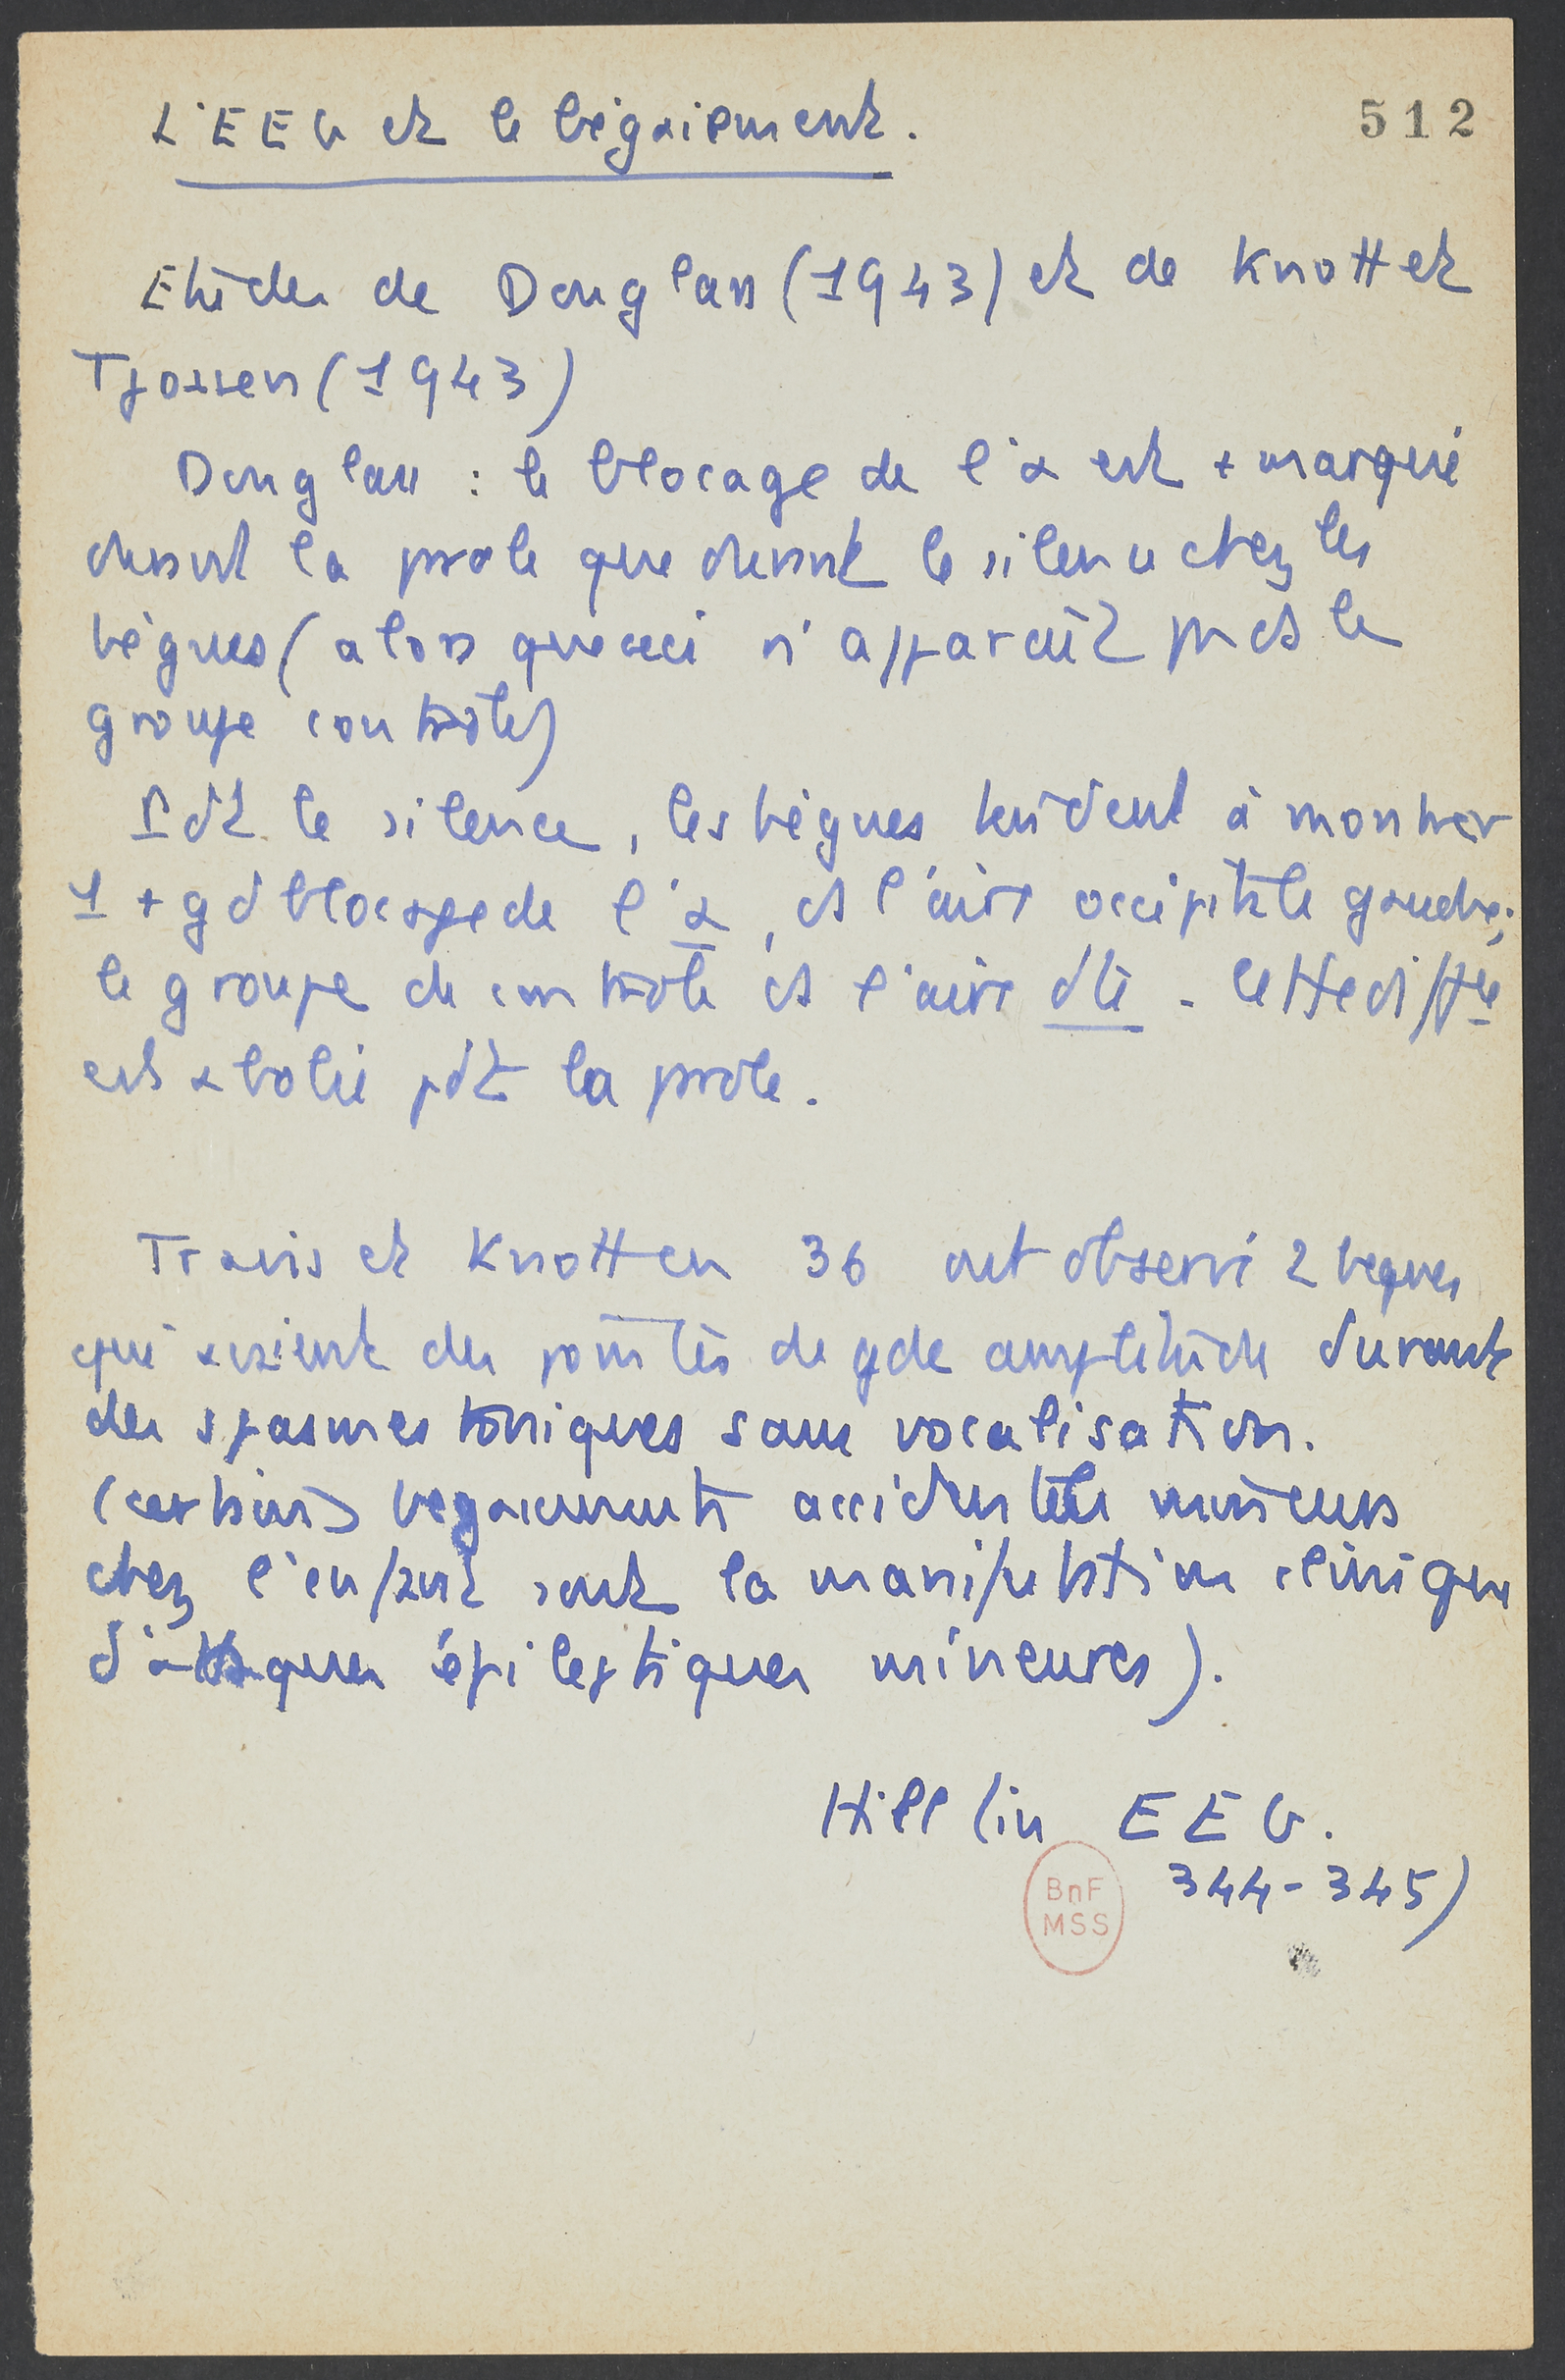 L'EEG et le bégaiement.
512
Etudes de Douglass (1943) et de Knott et
Tjossen (1943)
Douglass : le blocage de l'α est + marqué
durant la parole que durant le silence chez les
bègues (alors que ceci n'apparaît pas ds le
groupe contrôle)
Pdt le silence, les bègues tendent à montrer
1 + gd blocage de l'α, ds l'aire occipitale gauche;
le groupe de contrôle ds l'aire dte. Cette diffce
est abolie pdt la parole.
Travis et Knott en 36 ont observé 2 bègues
qui avaient des pointes de gde amplitude durant
des spasmes toniques sans vocalisation.
(certains bégaiements accidentels mineurs
chez l'enfant sont la manifestation clinique
d'attaques épileptiques mineures).
Hill (in EEG.
344-345)
BnF
MSS